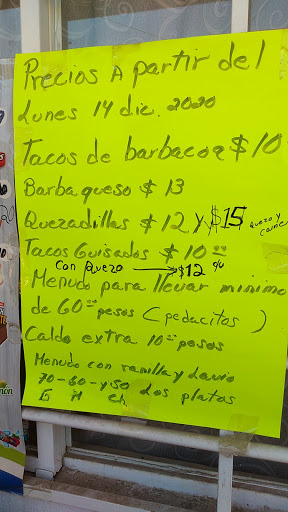 Precios A partir del
Lunes 14 dic. 2020
Tacos de barbacoa $10
Barbaqueso $ 13
Quezadillas $ 12 y $15 Quezo y Carne
Tacos Guisados $ 10 00
con Quezo → $12 %
Menudo para llevar minimo
de 60 00 pesos (pedacitos)
Caldo extra 10 00 pesos
Menudo con
70 - 60 - y 50 Los platos
G M ch